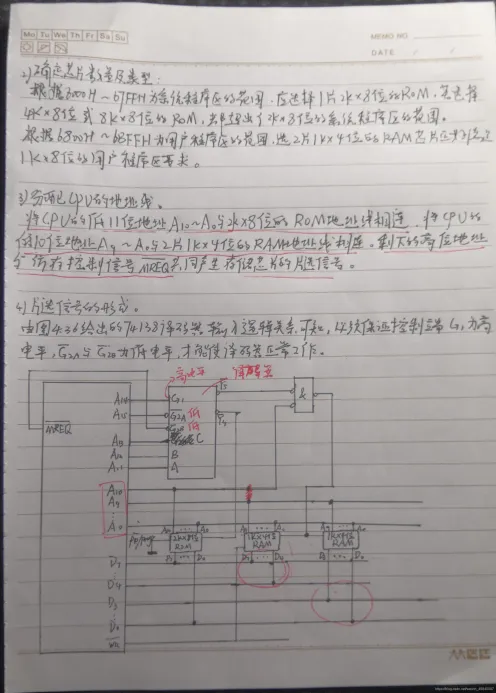 Mo Tu We Th Fr Sa Su
MEMO NO.
DATE / /
2) 确定芯片数量及类型:
根据6000H~67FFH为系统程序区的范围,应选择1片2K×8位的ROM,若选择
4K×8位或8K×8位的ROM,都超出了2K×8位的系统程序区的范围。
根据6800H~6BFFH为用户程序区的范围,选2片1K×4位的RAM芯片正好满足
1K×8位的用户程序区要求。
3) 分配CPU的地址线。
将CPU的低11位地址A10~A0与2K×8位的ROM地址线相连,将CPU的
低10位地址A9~A0与2片1K×4位的RAM地址线相连。剩下的高位地址
与访存控制信号MREQ共同产生存储芯片的片选信号。
4) 片选信号的形成。
由图4.36给出的74138译码器输入逻辑关系可知,必须保证控制端G1为高
电平,G2A与G2B为低电平,才能使译码器正常工作。
高电平 译码器
A14 G1 Y5
A15 G2A 低 Y4
MREQ G2B 低
A13 C
A12 B
A11 A
&
A10
A9
A0
A9 ... A0
1K×4位
RAM
1K×4位
RAM
D7
D4
D3
D0
WR
MEE